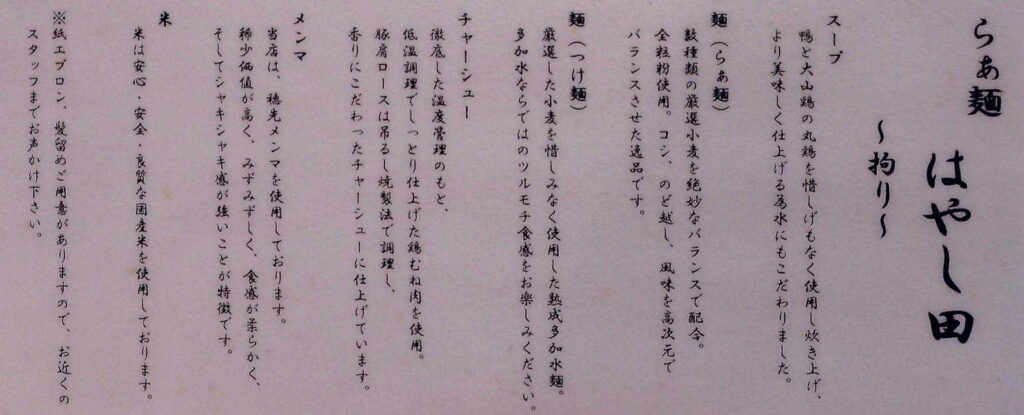 らぁ麺
はやし田
～拘り～
スープ
鴨と大山鶏の丸鶏を惜しげもなく使用し炊き上げ、
より美味しく仕上げる為水にもこだわりました。
麺（らぁ麺）
数種類の厳選小麦を絶妙なバランスで配合。
全粒粉使用。コシ、のど越し、風味を高次元で
バランスさせた逸品です。
麺（つけ麺）
厳選した小麦を惜しみなく使用した熟成多加水麺。
多加水ならではのツルモチ食感をお楽しみください。
チャーシュー
徹底した温度管理のもと、
低温調理でしっとり仕上げた鶏むね肉を使用。
豚肩ロースは吊るし焼製法で調理し、
香りにこだわったチャーシューに仕上げています。
メンマ
当店は、穂先メンマを使用しております。
稀少価値が高く、みずみずしく、食感が柔らかく、
そしてシャキシャキ感が強いことが特徴です。
米
米は安心・安全・良質な国産米を使用しております。
※紙エプロン、髪留めご用意がありますので、お近くの
スタッフまでお声かけ下さい。